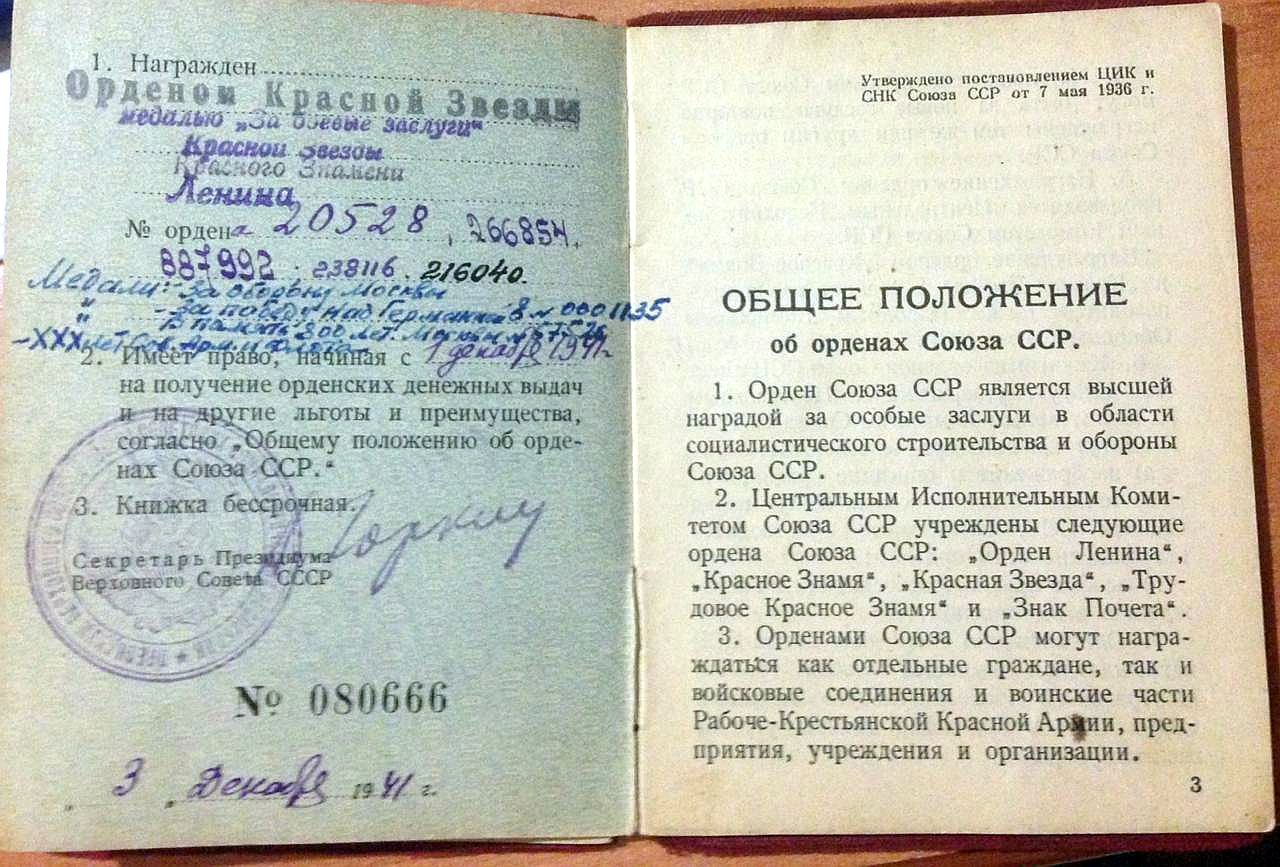 1. Награжден
Орденом Красной Звезды
медалью „За боевые заслуги“
Красной Звезды
Красного Знамени
Ленина
№ ордена 20528, 266854,
887992. 238116. 216040.
Медали: - За оборону Москвы
" - За победу над Германией В № 0001135
" В память 800 лет. Москвы
- XXX лет Сов. Арм. и флота
2. Имеет право, начиная с 1 декабря 1941 г.
на получение орденских денежных выдач
и на другие льготы и преимущества,
согласно „Общему положению об орде-
нах Союза ССР.“
3. Книжка бессрочная.
Секретарь Президиума
Верховного Совета СССР
№ 080666
„ 3 „ Декабря 1941 г.
Утверждено постановлением ЦИК и
СНК Союза ССР от 7 мая 1936 г.
ОБЩЕЕ ПОЛОЖЕНИЕ
об орденах Союза ССР.
1. Орден Союза ССР является высшей
наградой за особые заслуги в области
социалистического строительства и обороны
Союза ССР.
2. Центральным Исполнительным Коми-
тетом Союза ССР учреждены следующие
ордена Союза ССР: „Орден Ленина“,
„Красное Знамя“, „Красная Звезда“, „Тру-
довое Красное Знамя“ и „Знак Почета“.
3. Орденами Союза ССР могут награ-
ждаться как отдельные граждане, так и
войсковые соединения и воинские части
Рабоче-Крестьянской Красной Армии, пред-
приятия, учреждения и организации.
3